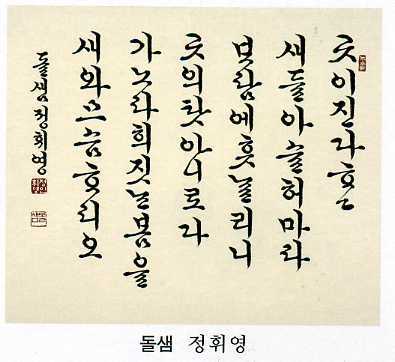 곳이진다ᄒᆞ고
새들아슬허마라
ᄇᆞ람에훗날리니
곳의탓아니로다
가노라희짓ᄂᆞᆫ봄을
새와므슴ᄒᆞ리오
돌샘정휘영
돌샘 정휘영